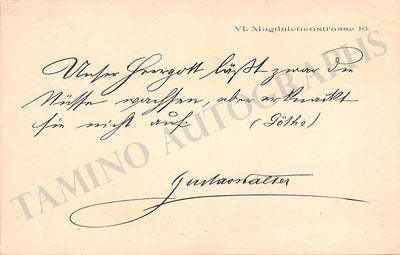 VI. Magdalenenstrasse 16.
Unser Herrgott läßt zwar die
Nüsse wachsen, aber er knackt
sie nicht auf (Göthe)
Gustav Walter
TAMINO AUTOGRAPHS